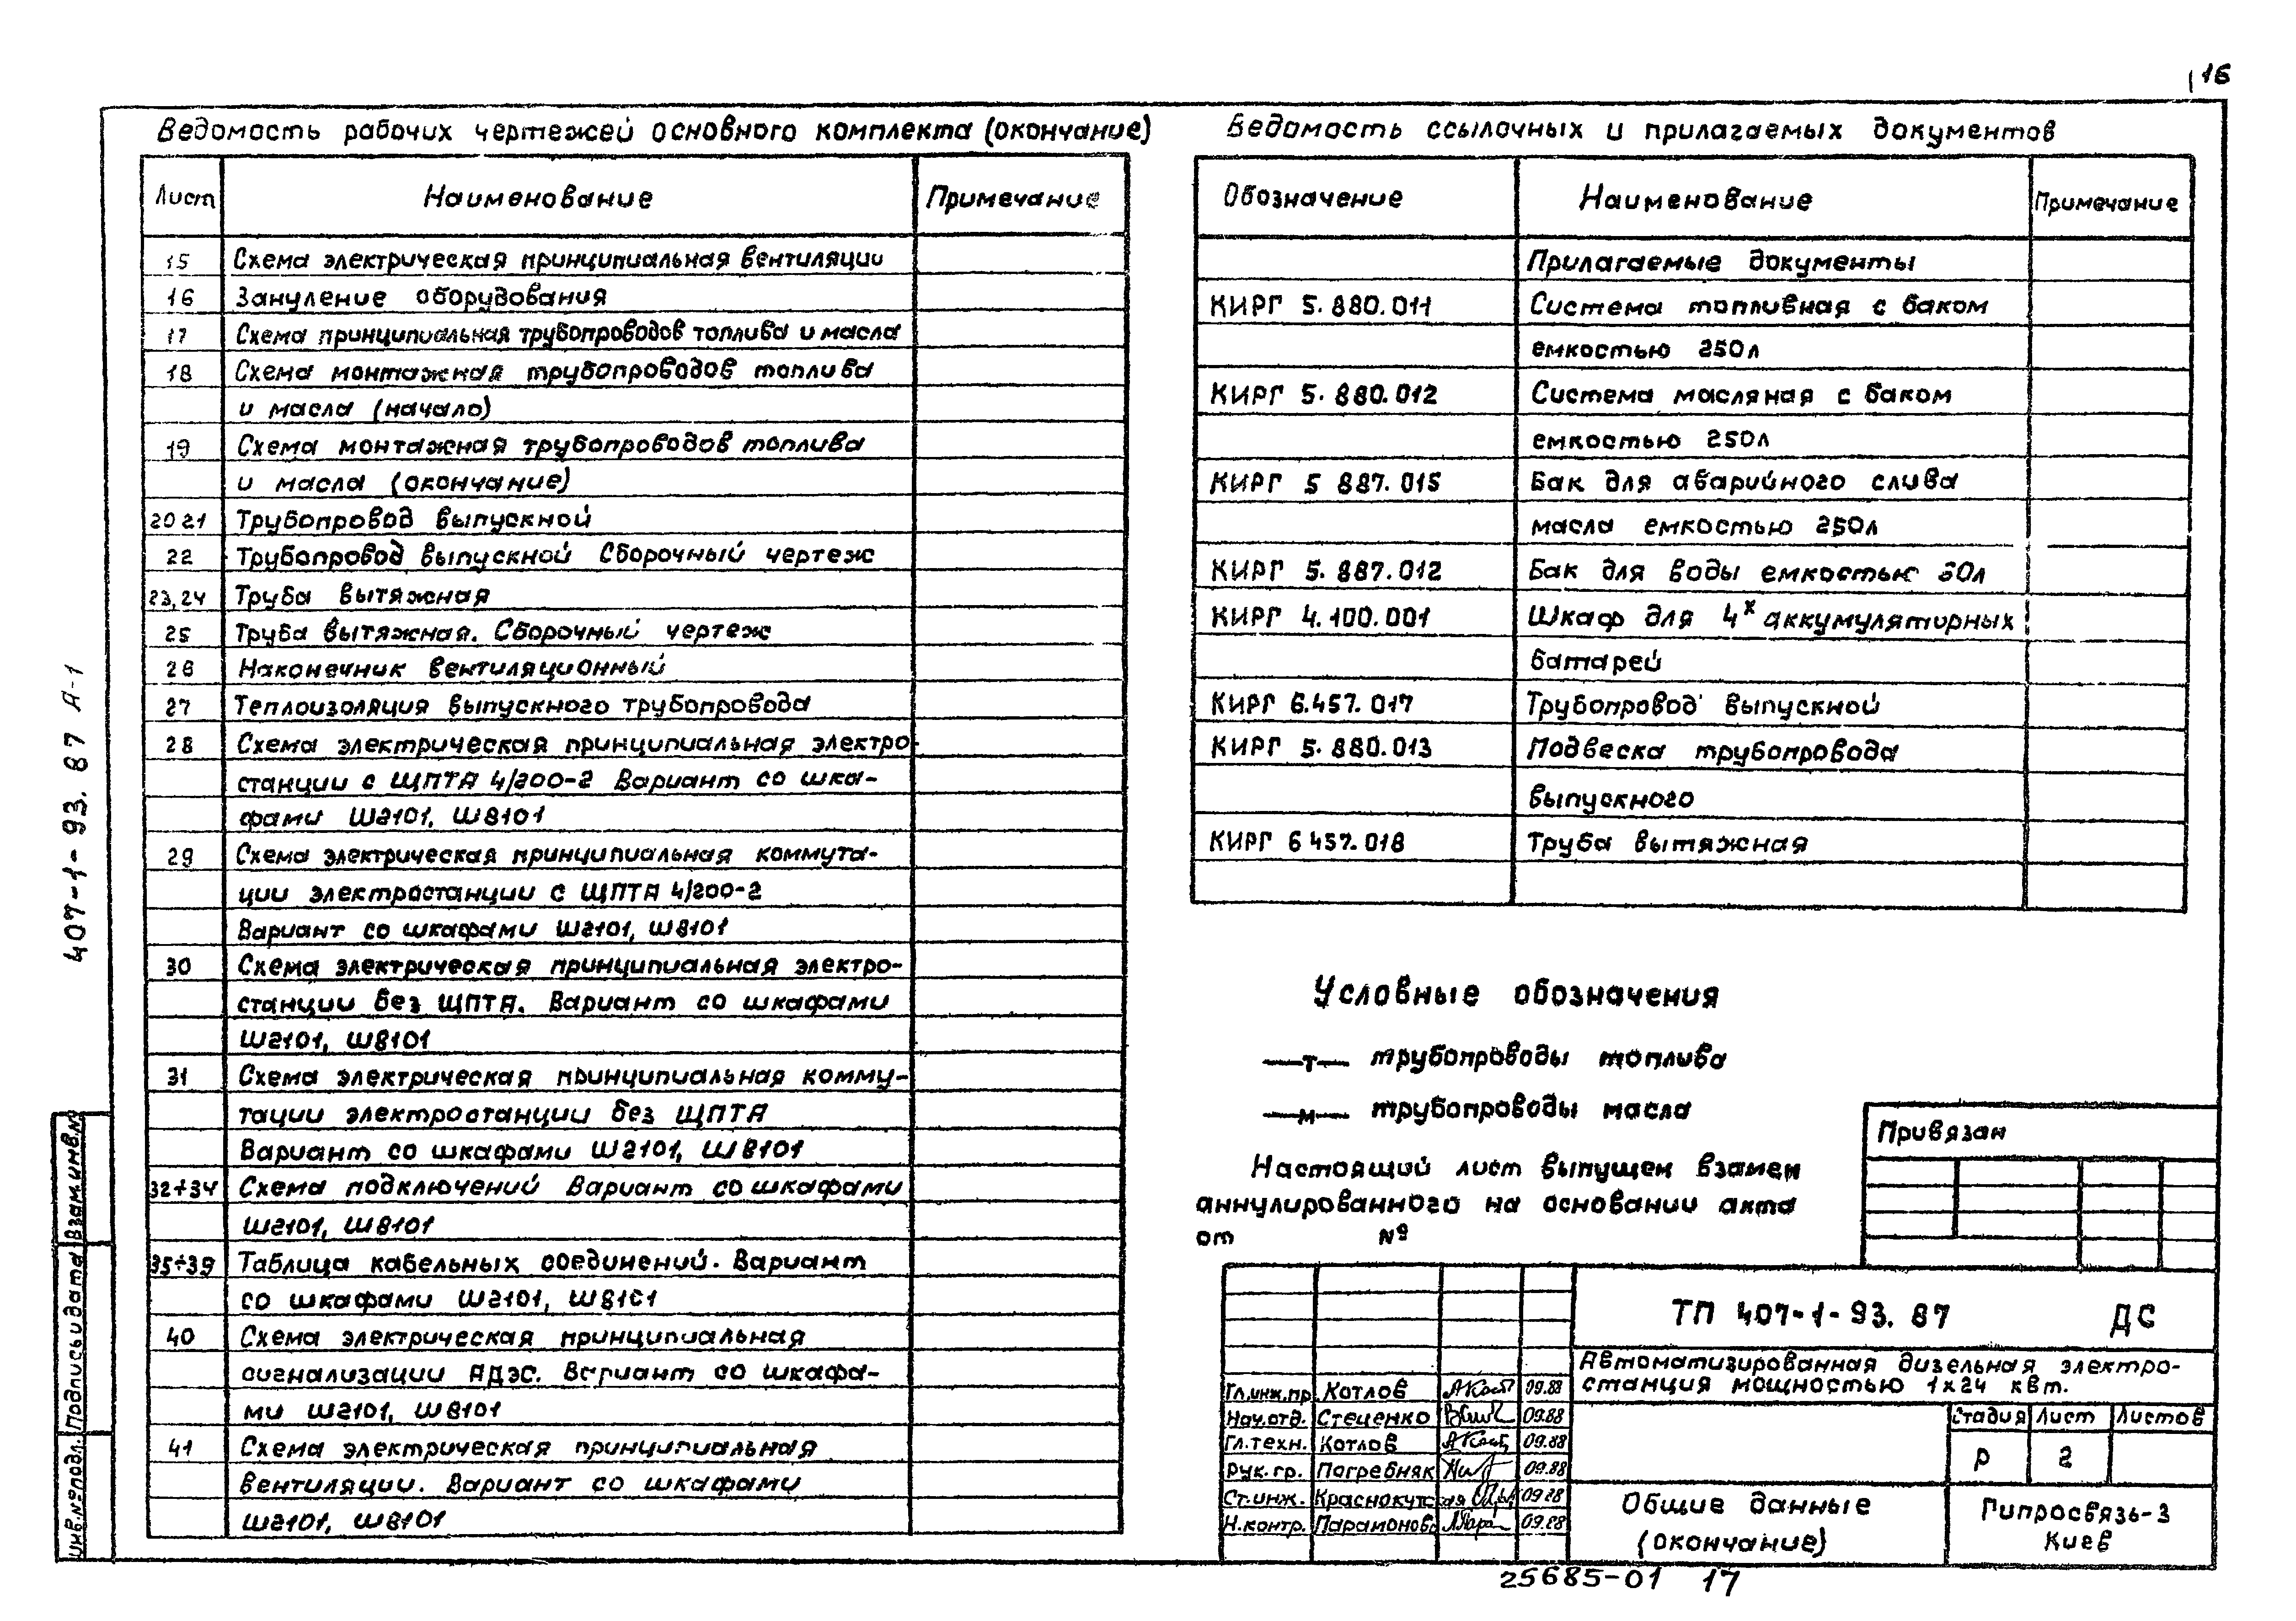 16
Ведомость рабочих чертежей основного комплекта (окончание)
Лист Наименование Примечание
15 Схема электрическая принципиальная вентиляции
16 Зануление оборудования
17 Схема принципиальная трубопроводов топлива и масла
18 Схема монтажная трубопроводов топлива
и масла (начало)
19 Схема монтажная трубопроводов топлива
и масла (окончание)
20 21 Трубопровод выпускной
22 Трубопровод выпускной Сборочный чертеж
23,24 Труба вытяжная
25 Труба вытяжная. Сборочный чертеж
26 Наконечник вентиляционный
27 Теплоизоляция выпускного трубопровода
28 Схема электрическая принципиальная электро-
станции с ЩПТА 4/200-2 Вариант со шка-
фами Ш2101, Ш8101
29 Схема электрическая принципиальная коммута-
ции электростанции с ЩПТА 4/200-2
Вариант со шкафами Ш2101, Ш8101
30 Схема электрическая принципиальная электро-
станции без ЩПТА. Вариант со шкафами
Ш2101, Ш8101
31 Схема электрическая принципиальная комму-
тации электростанции без ЩПТА
Вариант со шкафами Ш2101, Ш8101
32÷34 Схема подключений Вариант со шкафами
Ш2101, Ш8101
35÷39 Таблица кабельных соединений. Вариант
со шкафами Ш2101, Ш8101
40 Схема электрическая принципиальная
сигнализации АДЭС. Вариант со шкафа-
ми Ш2101, Ш8101
41 Схема электрическая принципиальная
вентиляции. Вариант со шкафами
Ш2101, Ш8101
Ведомость ссылочных и прилагаемых документов
Обозначение Наименование Примечание
Прилагаемые документы
КИРГ 5.880.011 Система топливная с баком
емкостью 250л
КИРГ 5.880.012 Система масляная с баком
емкостью 250л
КИРГ 5 887.015 Бак для аварийного слива
масла емкостью 250л
КИРГ 5.887.012 Бак для воды емкостью 30л
КИРГ 4.100.001 Шкаф для 4х аккумуляторных
батарей
КИРГ 6.457.017 Трубопровод выпускной
КИРГ 5.880.013 Подвеска трубопровода
выпускного
КИРГ 6 457.018 Труба вытяжная
Условные обозначения
—т— трубопроводы топлива
—м— трубопроводы масла
Настоящий лист выпущен взамен
аннулированного на основании акта
от №
Привязан
ТП 407-1-93.87 ДС
Автоматизированная дизельная электро-
станция мощностью 1х24 квт.
Гл.инж.пр Котлов 09.88
Нач.отд. Стеценко 09.88
Гл.техн. Котлов 09.88
Рук.гр. Погребняк 09.88
Ст.инж. Краснокутская 09.88
Н.контр. Парамонова 09.88
Стадия Лист Листов
Р 2
Общие данные
(окончание)
Гипросвязь-3
Киев
25685-01 17
407-1-93.87 А-1
Инв.№подл. Подпись и дата Взам.инв.№